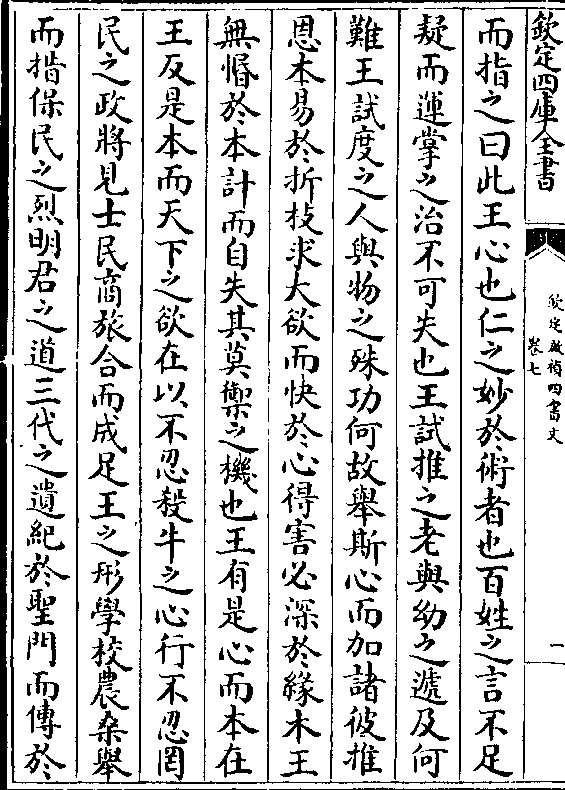 欽定四庫全書
欽定啟禎四書文
卷七
一
而指之曰此王心也仁之妙於術者也百姓之言不足
疑而運掌之治不可失也王試推之老與幼之遞及何
難王試度之人與物之殊功何故舉斯心而加諸彼推
恩本易於折枝求大欲而快於心得害必深於緣木王
無惛於本計而自失其莫禦之機也王有是心而本在
王反是本而天下之欲在以不忍殺牛之心行不忍罔
民之政將見士民商旅合而成足王之形學校農桑舉
而措保民之烈明君之道三代之遺紀於聖門而傳於